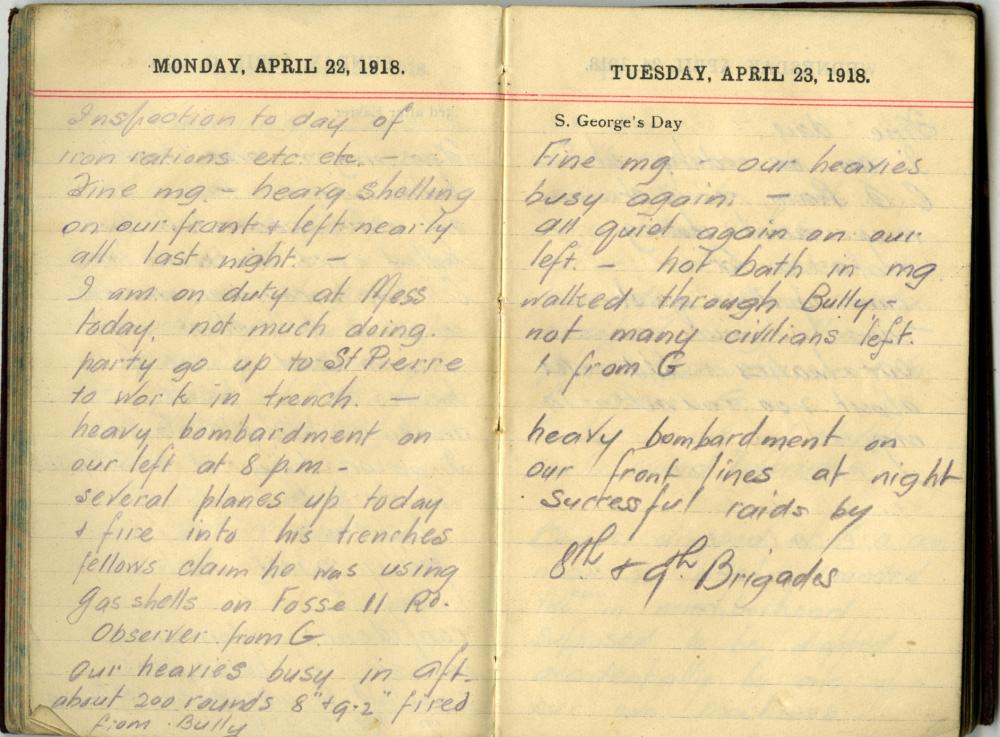 MONDAY, APRIL 22, 1918.
Inspection to day of
iron rations etc. etc. —
Fine mg. — heavy shelling
on our front + left nearly
all last night. —
I am on duty at Mess
today. not much doing.
party go up to St Pierre
to work in trench. —
heavy bombardment on
our left at 8 p.m. -
several planes up today
+ fire into his trenches
fellows claim he was using
gas shells on Fosse 11 Rd.
Observer from G.
our heavies busy in aft.
about 200 rounds 8" + 9.2" fired
from Bully
TUESDAY, APRIL 23, 1918.
S. George's Day
Fine mg. our heavies
busy again. —
all quiet again on our
left. — hot bath in mg.
walked through Bully -
not many civilians left.
from G
heavy bombardment on
our front lines at night
successful raids by
8th + 9th Brigades